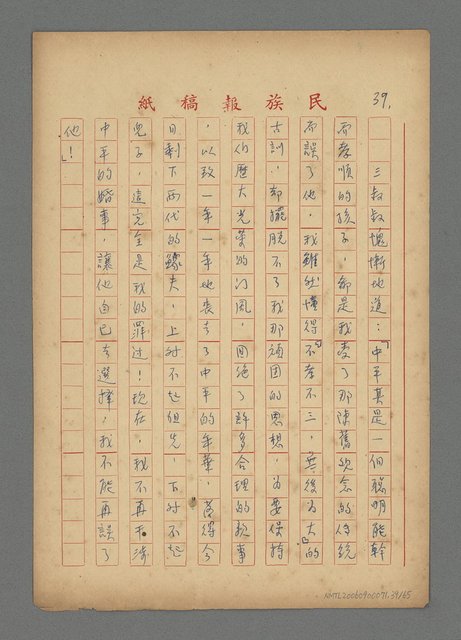 民族報稿紙
39.
三叔叔愧慚地道：「中平真是一個聰明能幹
而孝順的孩子，卻是我受了那陳舊觀念的傳統
而誤了他，我雖然懂得『不孝不三，無後為大』的
古訓，却擺脫不了我那頑固的思想，為要保持
我們歷代光榮的门風，回絕了許多合理的親事
，以致一年一年地喪去了中平的年華，落得今
日剩下两代的鰥夫，上对不起祖先，下对不起
兒子，這完全是我的罪过！現在，我不再干涉
中平的婚事，讓他自己去選擇，我不能再誤了
他！」
NMTL20060900071.39/65